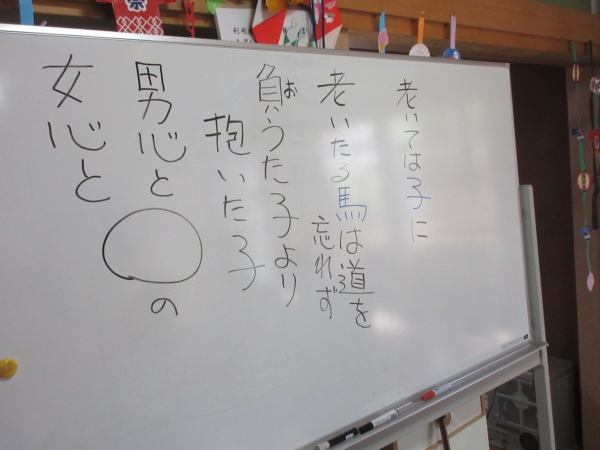 老いては子に
老いたる馬は道を
忘れず
負うた子より
抱いた子
男心と◯の
女心と
祭